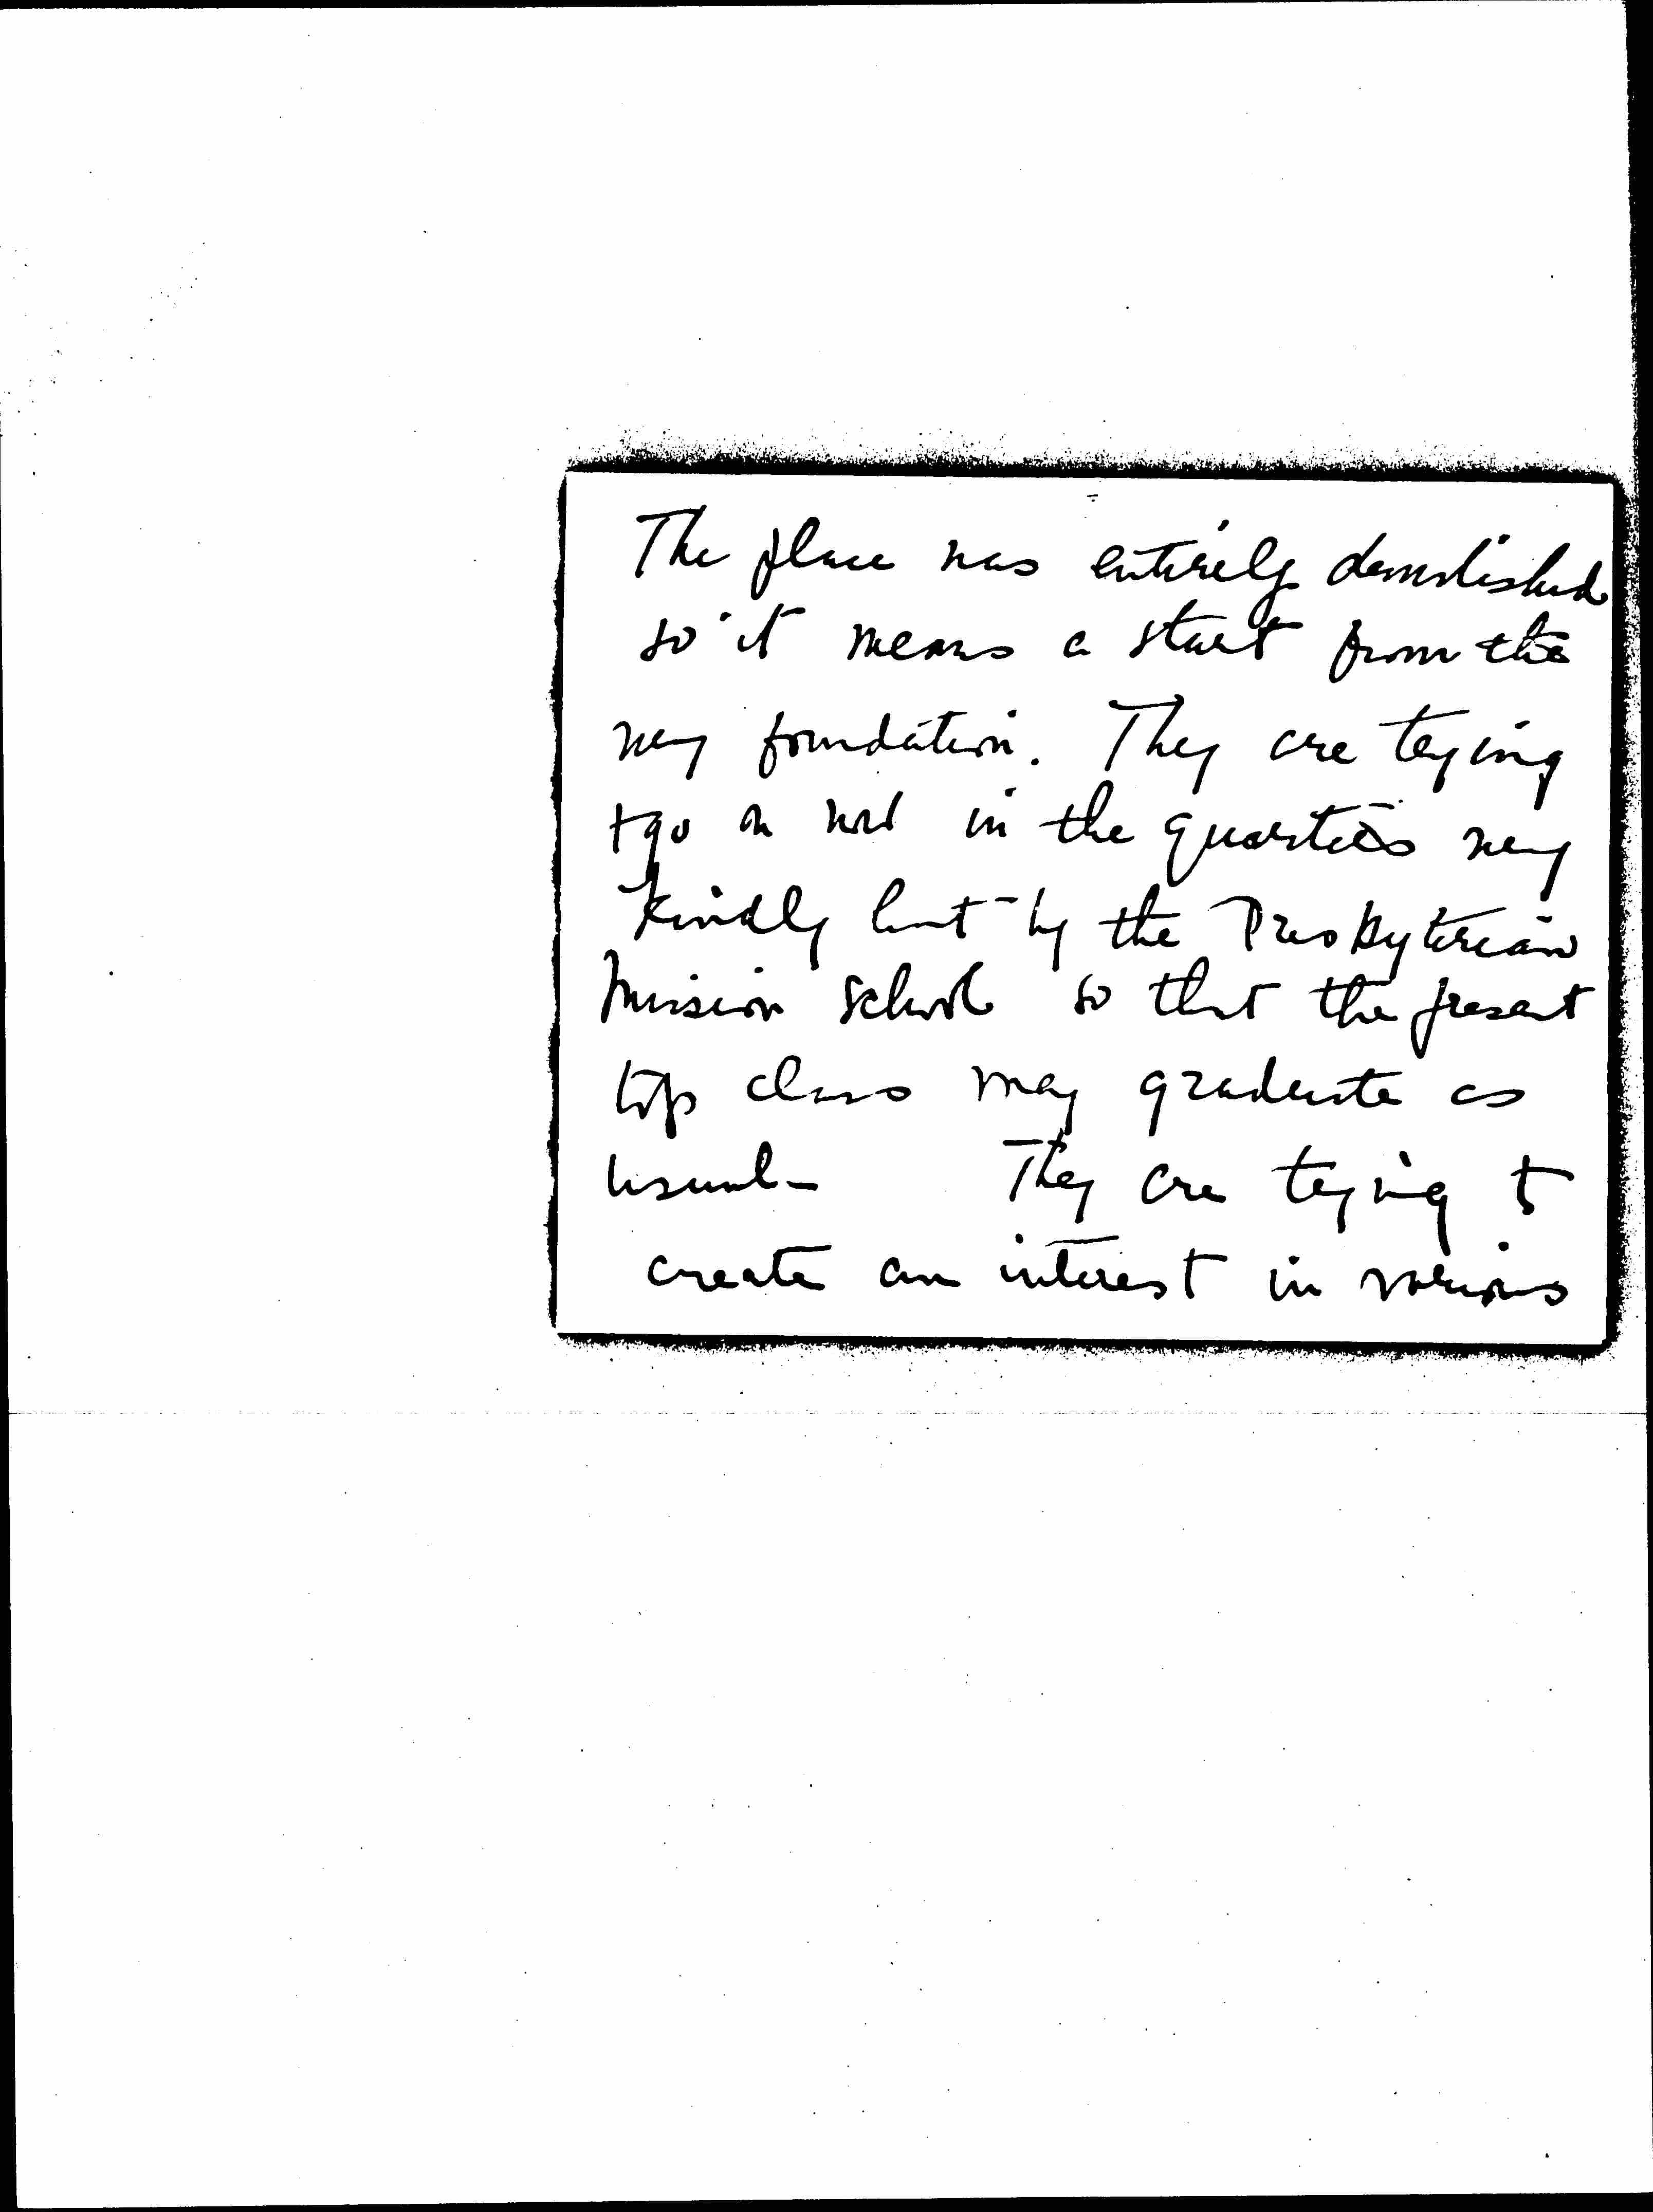 The place was entirely demolished
so it means a start from the
very foundation. They are trying
to go on now in the quarters very
kindly lent by the Presbyterian
Mission School so that the present
top class may graduate as
usual - They are trying to
create an interest in various